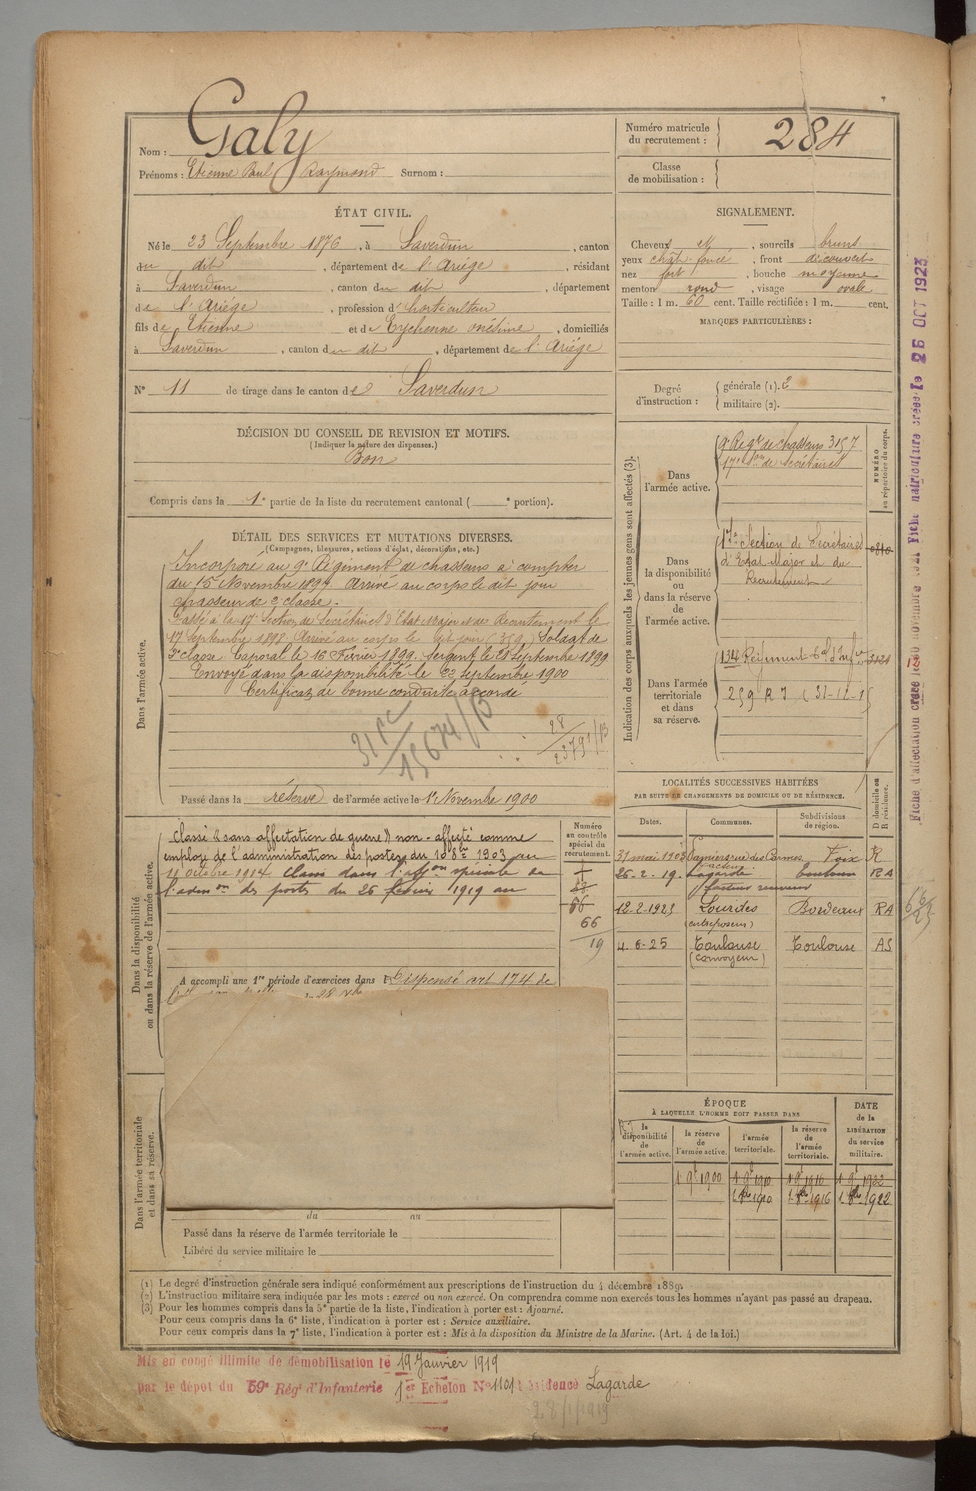 Nom : Galy
Prénoms : Etienne Paul Raymond Surnom :
Numéro matricule du recrutement : 284
Classe de mobilisation :
ÉTAT CIVIL.
Né le 23 Septembre 1876, à Saverdun, canton
du dit, département de l'Ariège, résidant
à Saverdun, canton du dit, département
de l'Ariège, profession d'horticulteur
fils de Etienne et de Eychenne onésime, domiciliés
à Saverdun, canton du dit, département de l'Ariège
N° 11 de tirage dans le canton de Saverdun
SIGNALEMENT.
Cheveux et, sourcils bruns
yeux chât. foncé, front découvert
nez fort, bouche moyenne
menton rond, visage ovale
Taille : 1 m. 60 cent. Taille rectifiée : 1 m. cent.
MARQUES PARTICULIÈRES :
Degré d'instruction : générale (1). 2
militaire (2).
DÉCISION DU CONSEIL DE REVISION ET MOTIFS.
(Indiquer la nature des dispenses.)
Bon
Compris dans la 1e partie de la liste du recrutement cantonal ( e portion).
DÉTAIL DES SERVICES ET MUTATIONS DIVERSES.
(Campagnes, blessures, actions d'éclat, décorations, etc.)
Dans l'armée active.
Incorporé au 9e Régiment de chasseurs à compter
du 15 Novembre 1897. Arrivé au corps le dit jour
chasseur de 2e classe.
Passé à la 17e Section de Secrétaires d'Etat Major et du Recrutement le
17 Septembre 1898. Arrivé au corps le dit jour (359) Soldat de
2e classe. Caporal le 16 Février 1899. Sergent le 28 Septembre 1899
Envoyé dans la disponibilité le 22 Septembre 1900
Certificat de bonne conduite accordé
Passé dans la réserve de l'armée active le 1er Novembre 1900
Indication des corps auxquels les jeunes gens sont affectés (3).
NUMÉRO au répertoire du corps.
Dans l'armée active.
9e Regt de chasseurs 3157
17e Son de secrétaires
Dans la disponibilité ou dans la réserve de l'armée active.
17e Section de Secrétaires
d'Etat Major et du
Recrutement
Dans l'armée territoriale et dans sa réserve.
134 Régiment tal d'Infie
259 R I
Dans la disponibilité ou dans la réserve de l'armée active.
Classé "sans affectation de guerre" non-affecté comme
employé de l'administration des postes du 10 8bre 1903 au
11 octobre 1914. Classé dans l'affon spéciale de
l'admon des postes du 26 février 1919 au
A accompli une 1re période d'exercices dans l Dispensé art 174 de
Numéro au contrôle spécial du recrutement.
66
19
LOCALITÉS SUCCESSIVES HABITÉES
PAR SUITE DE CHANGEMENTS DE DOMICILE OU DE RÉSIDENCE.
Dates. Communes. Subdivisions de région. D domicile ou R résidence.
31 mai 1903 Foix R
26-2-19. Lagarde Toulouse RA
facteur receveur
12-2-1923 Lourdes Bordeaux RA
(entreposeur)
4-6-25 Toulouse Toulouse AS
(convoyeur)
ÉPOQUE
À LAQUELLE L'HOMME DOIT PASSER DANS
la disponibilité de l'armée active. la réserve de l'armée active. l'armée territoriale. la réserve de l'armée territoriale.
DATE de la LIBÉRATION du service militaire.
1 9e 1900 1 9e 1910 1 9e 1916 1 9e 1922
1 8bre 1910 1 8bre 1916 1 8bre 1922
Dans l'armée territoriale et dans sa réserve.
du au
Passé dans la réserve de l'armée territoriale le
Libéré du service militaire le
(1) Le degré d'instruction générale sera indiqué conformément aux prescriptions de l'instruction du 4 décembre 1889.
(2) L'instruction militaire sera indiquée par les mots : exercé ou non exercé. On comprendra comme non exercés tous les hommes n'ayant pas passé au drapeau.
(3) Pour les hommes compris dans la 5e partie de la liste, l'indication à porter est : Ajourné.
Pour ceux compris dans la 6e liste, l'indication à porter est : Service auxiliaire.
Pour ceux compris dans la 7e liste, l'indication à porter est : Mis à la disposition du Ministre de la Marine. (Art. 4 de la loi.)
Mis en congé illimité de démobilisation le 19 Janvier 1919
par le dépôt du 59e Régt d'Infanterie 1er Echelon N° 1101 Résidence Lagarde
28/1/1919
Fiche matriculaire créée le 26 OCT 1923